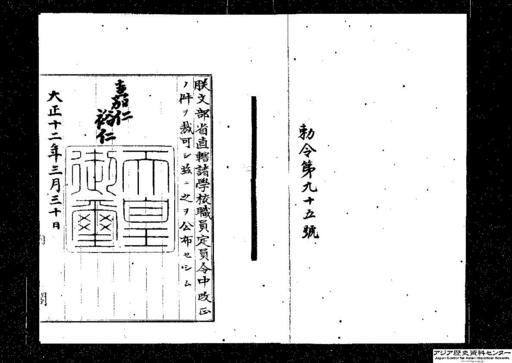 勅令第九十五號
朕文部省直轄諸學校職員定員令中改正
ノ件ヲ裁可シ茲ニ之ヲ公布セシム
嘉仁
裕仁
天皇
御璽
大正十二年三月三十日
アジア歴史資料センター
Japan Center for Asian Historical Records